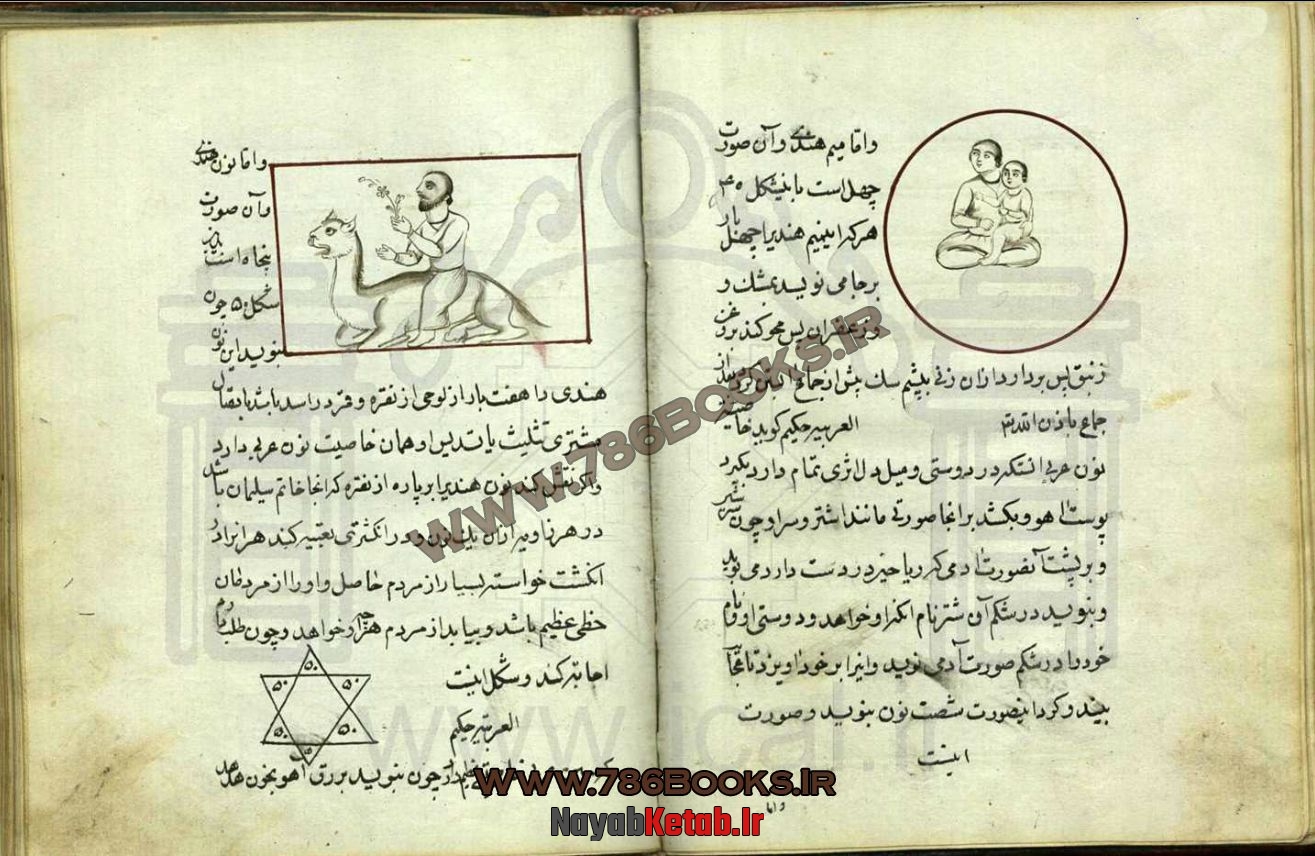 واما میم هندی وآن صورت
چهل است باینشکل ۴۰
هر که این میم هندیرا چهل بار
بر جامی نویسد بمشک و
وزعفران پس محو کند بروغن
زنبق پس بردارد ازان زنی پیش از جماع
جماع باذن الله تعالی العربیه حکیم کوید خاصیت
نون عربی انستکه در دوستی ومیل دل اثری تمام دارد بکیرد
پوست اهو وبکشد برانجا صورتی مانند اشتر وسر او چون سر شیر
وبر پشت آنصورت ادمی که ریاحین در دست دارد می نوید
وبنوید در شکم آن شتر نام انکه او خواهد ودوستی او ونام
خود را در شکم صورت آدمی نوید واینرا بر خود اویزد تا عجایب
بیند وکرد اینصورت شصت نون بنوید وصورت
اینست
واما
واما نون هندی
وآن صورت
پنجاه است باین
شکل ۵۰ چون
بنوید این نون
هندی را هفت بار از لوحی از نقره وقمر در اسد باشد باتصال
مشتری تثلیث یا تسدیس او همان خاصیت نون عربی دارد
واکر نقش کند نون هندیرا بر پاره از نقره که انجا خاتم سلیمان باشد
در هر زاویه ازان یک نون ودر انکشتری تعبیه کند
انکشت خواسته بسیار از مردم حاصل و او را از مردمان
حظی عظیم باشد وبیابد از مردم هر چیز او خواهد وچون طلب
اجابت کند وشکل اینست
۵۰
۵۰
۵۰
۵۰
۵۰
۵۰
العربیه حکیم
چون بنوید بر رق آهو بخون هدهد
WWW.786BOOKS.IR
www.ical.ir
WWW.786BOOKS.IR
NayabKetab.Ir